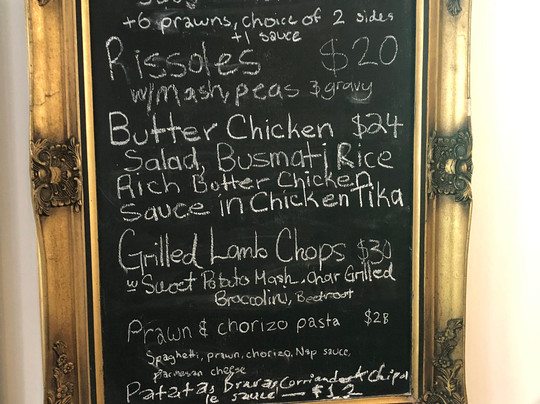 +6 prawns, choice of 2 sides
+1 sauce
Rissoles $20
w/Mash, peas & gravy
Butter Chicken $24
Salad, Busmati Rice
Rich Butter Chicken
Sauce in Chicken Tika
Grilled Lamb Chops $30
w Sweet Potato Mash, Char Grilled
Broccolini, Beetroot
Prawn & chorizo pasta $28
Spaghetti, prawn, chorizo, Nap sauce,
Parmesan cheese
Patatas Bravas, Corriander & Chipot
le sauce — $12